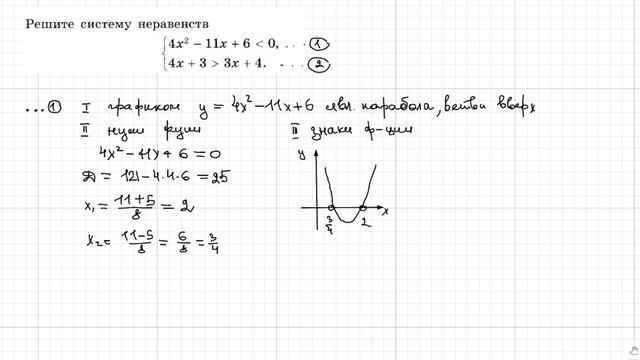 Решите систему неравенств
4x² − 11x + 6 < 0, ... ①
4x + 3 > 3x + 4. ... ②
...① I графиком y = 4x² − 11x + 6 явл. парабола, ветви вверх
II нули функции III знаки ф-ции
4x² − 11x + 6 = 0
D = 121 − 4·4·6 = 25
x₁ = (11+5)/8 = 2
x₂ = (11−5)/8 = 6/8 = 3/4
y
x
3/4 2